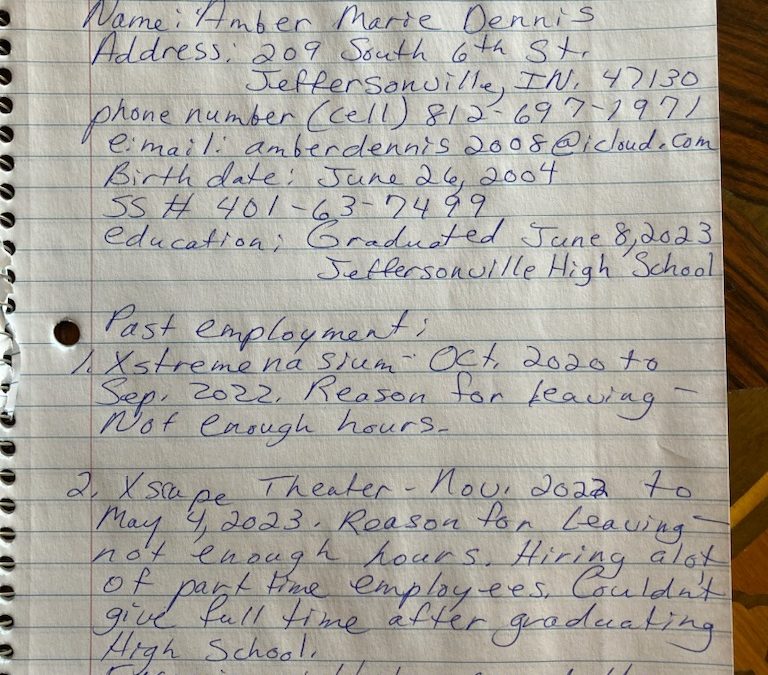 Name: Amber Marie Dennis
Address: 209 South 6th St.
Jeffersonville, IN. 47130
phone number (cell) 812-697-1971
e:mail: amberdennis2008@icloud.com
Birth date: June 26, 2004
SS # 401-63-7499
education: Graduated June 8, 2023
Jeffersonville High School
Past employment:
1. Xstremenasium - Oct. 2020 to
Sep. 2022. Reason for leaving -
Not enough hours.
2. Xscape Theater - Nov. 2022 to
May 4, 2023. Reason for Leaving -
not enough hours. Hiring alot
of part time employees. Couldn't
give full time after graduating
High School.